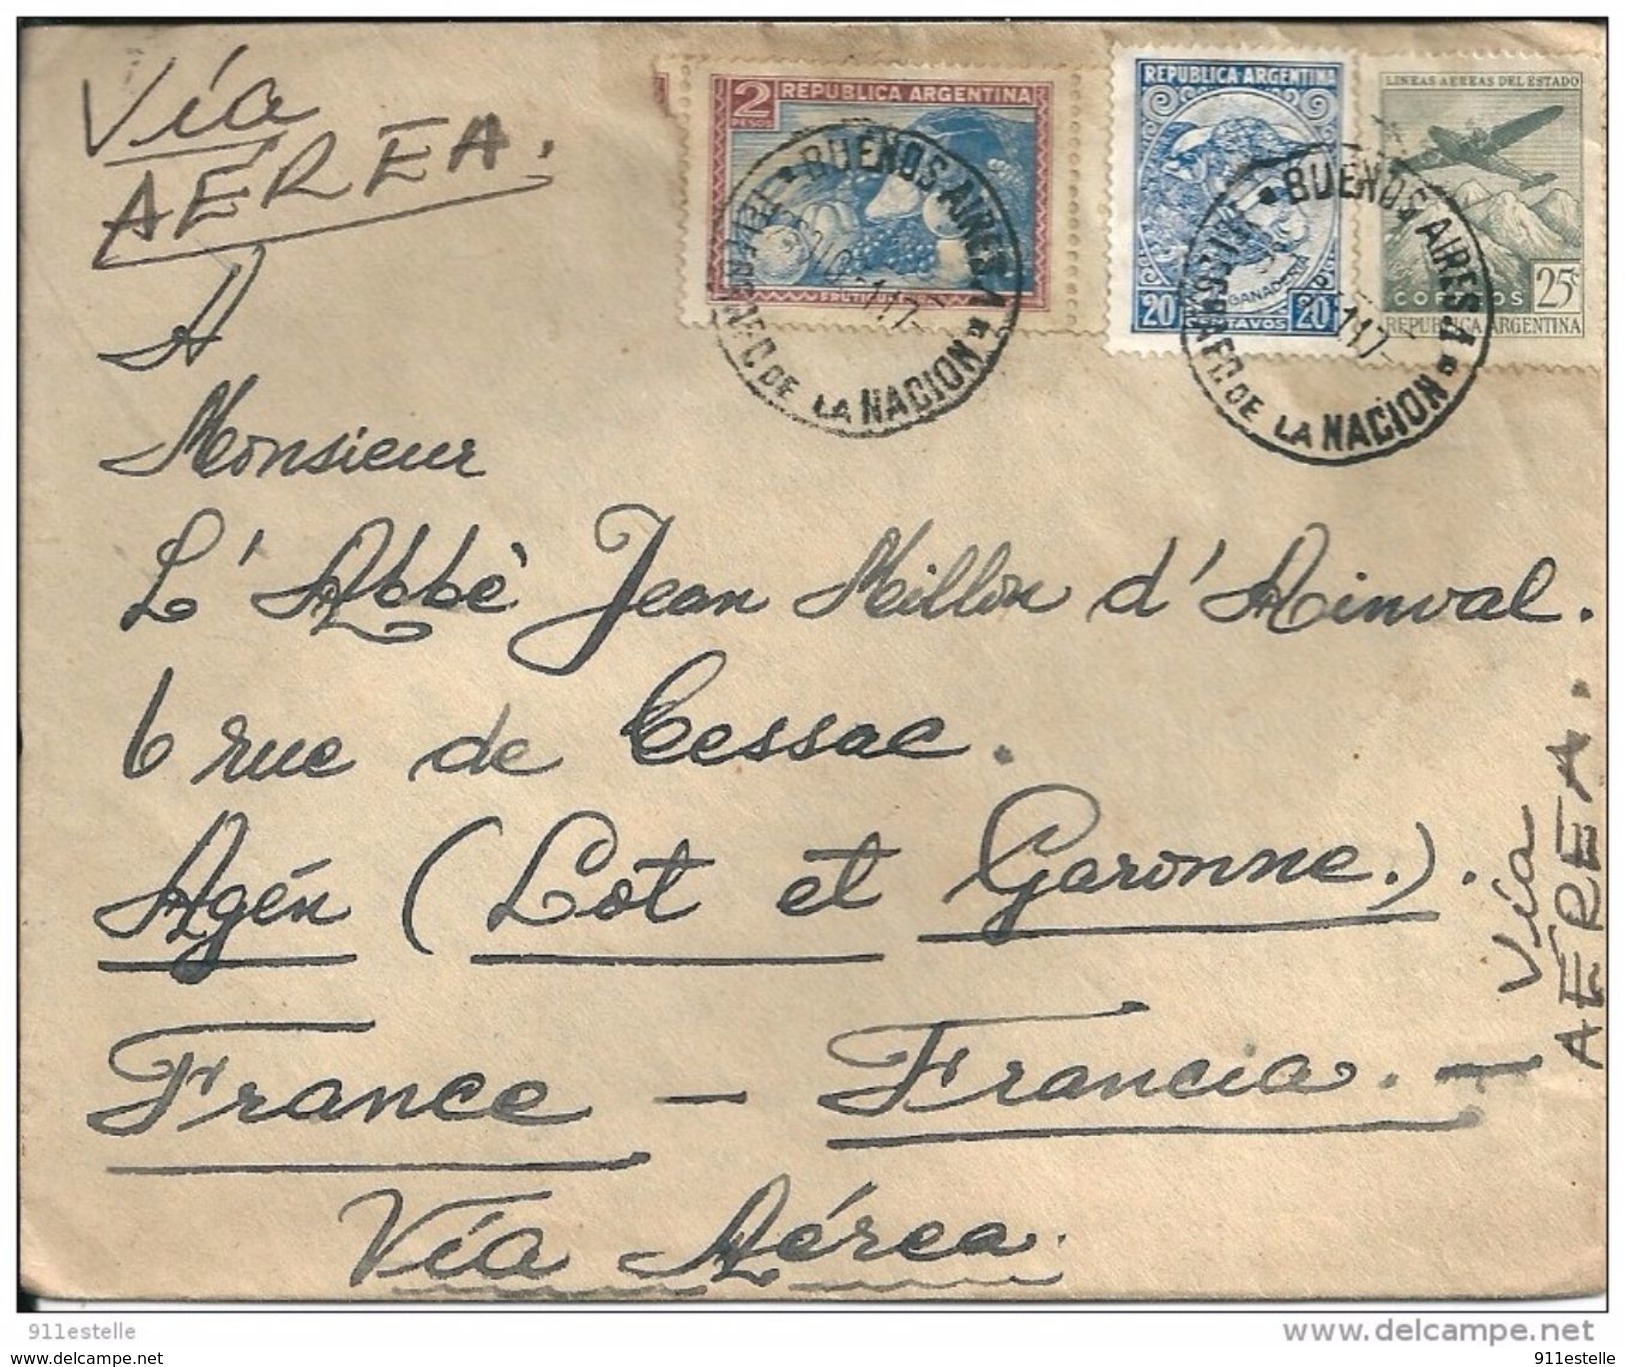 Vía
AÉREA.
2 REPUBLICA ARGENTINA
PESOS
REPUBLICA ARGENTINA
GANADERIA
20 CENTAVOS 20
LINEAS AEREAS DEL ESTADO
25c
CORREOS
REPUBLICA ARGENTINA
BUENOS AIRES
DE LA NACION
BUENOS AIRES
DE LA NACION
A
Monsieur
L'Abbè Jean Millon d'Ainval.
6 rue de Cessac.
Agén (Lot et Garonne.).
France - Francia. -
Vía Aérea.
Vía
AÉREA.
911estelle
delcampe.net
911estelle
www.delcampe.net
911estelle